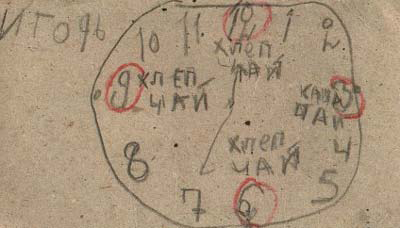 ИГОРЬ
10 11 12 1 2
ХЛЕП
ЧАЙ
9 ХЛЕП
ЧАЙ
КАША 3
ЧАЙ
ХЛЕП
ЧАЙ
4
8
5
7 6